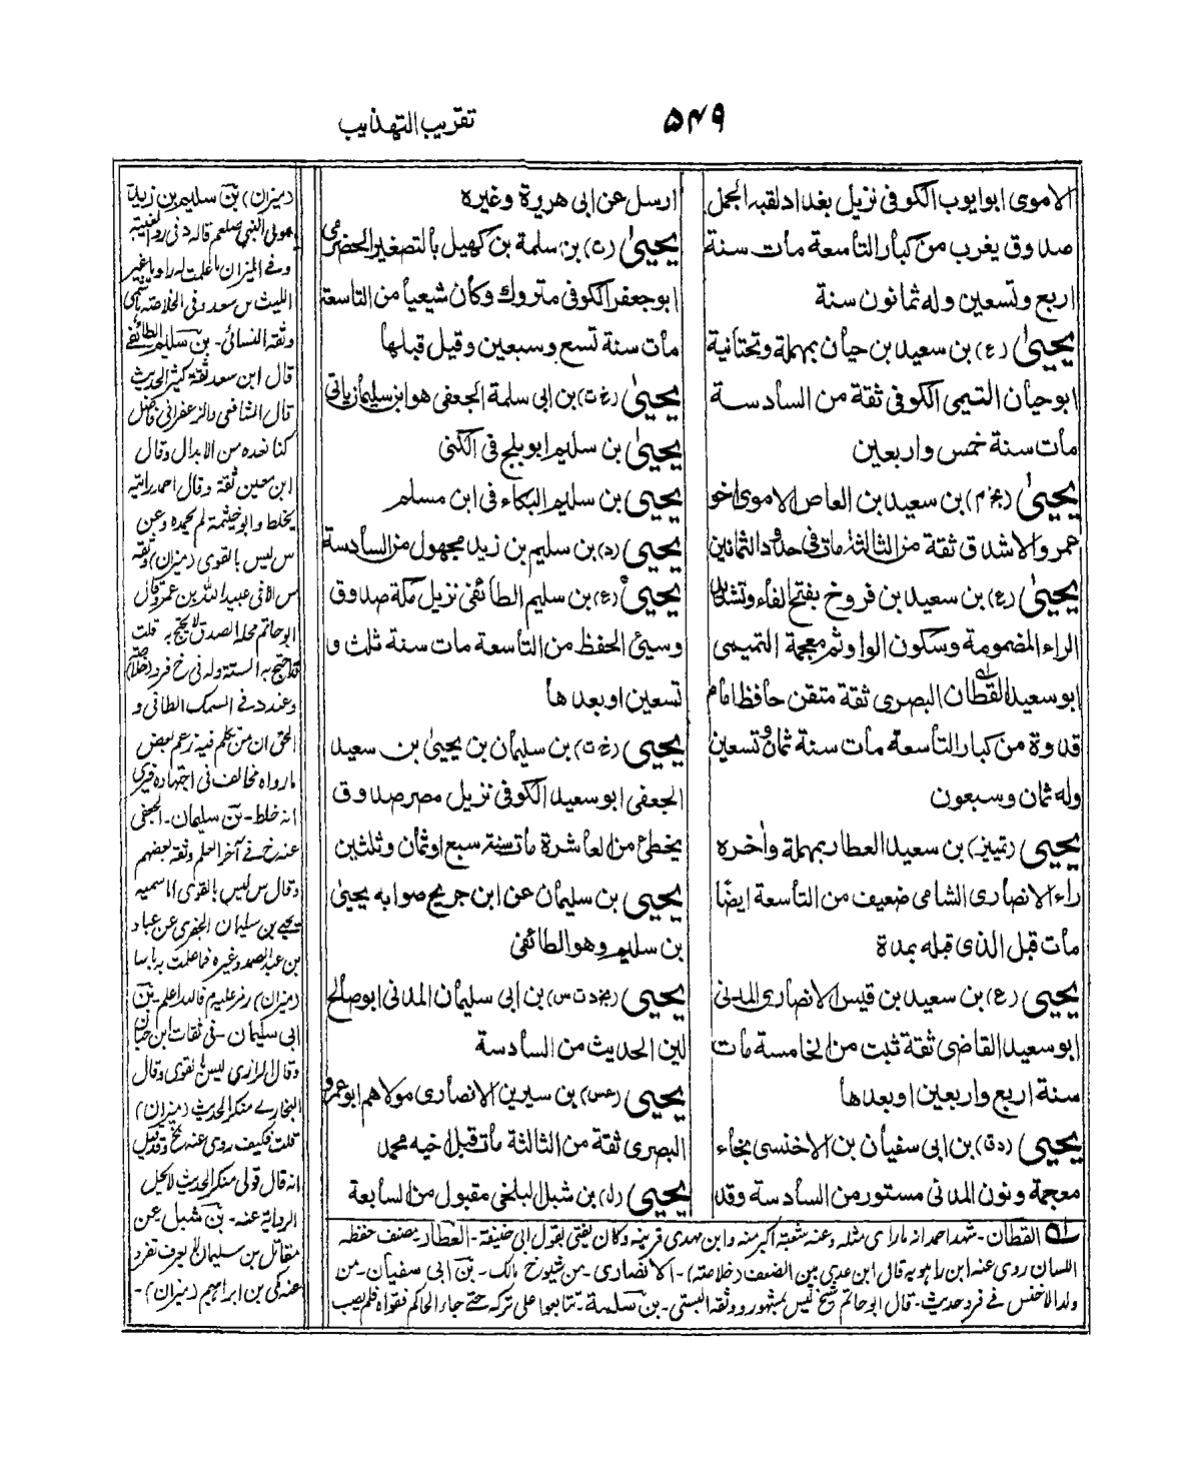 ۵۴۹
تقریب التهذیب
الاموی ابو ایوب الکوفی نزیل بغداد لقبه الجمل
صدوق یغرب من کبار التأسعة مأت سنة
اربع وتسعین وله ثمانون سنة
یحییٰ (ع) بن سعید بن حیأن بمهملة وتحتأنیة
ابوحیأن التیمی الکوفی ثقة من السأدسة
مأت سنة خمس واربعین
یحییٰ (بخ م) بن سعید بن العاص الاموی اخو
عمرو الاشدق ثقة من الثالثة مأت فی حدود الثمانین
یحییٰ (ع) بن سعید بن فروخ بفتح الفأء وتشدید
الراء المضمومة وسکون الواو ثم معجمة التمیمی
ابو سعید القطأن البصری ثقة متقن حأفظ امأم
قدوة من کبار التأسعة مأت سنة ثمأن وتسعین
وله ثمان وسبعون
یحیی (تمییز) بن سعید العطار بمهملة وأخره
راء الانصاری الشامی ضعیف من التأسعة ایضًا
مأت قبل الذی قبله بمدة
یحیی (ع) بن سعید بن قیس الانصاری المدنی
ابو سعید القاضی ثقة ثبت من الخامسة مأت
سنة اربع واربعین او بعدهأ
یحیی (دق) بن ابی سفیأن بن الاخنسی بخأء
معجمة ونون المدنی مستور من السأدسة وقد
ارسل عن ابی هریرة وغیره
یحییٰ (ت) بن سلمة بن کهیل بألتصغیر الحضرمی
ابو جعفر الکوفی متروك وکأن شیعیأ من التاسعة
مأت سنة تسع وسبعین وقیل قبلهأ
یحییٰ (خ ت) بن ابی سلمة الجعفی هو ابن سلیمأن یأتی
یحییٰ بن سلیم ابو بلج فی الکنی
یحییٰ بن سلیم البکاء فی ابن مسلم
یحیی (د) بن سلیم بن زید مجهول من السأدسة
یحیی (ع) بن سلیم الطأئفی نزیل مکة صدوق
وسیئ الحفظ من التأسعة مات سنة ثلث و
تسعین او بعدها
یحیی (خ ت) بن سلیمأن بن یحییٰ بن سعید
الجعفی ابو سعید الکوفی نزیل مصر صدوق
یخطئ من العاشرة مأت سنة سبع او ثمأن وثلثین
یحیی بن سلیمأن عن ابن جریج صوابه یحییٰ
بن سلیم وهو الطائفی
یحیی (بخ د ت س) بن ابی سلیمأن المدنی ابو صألح
لین الحدیث من السأدسة
یحیی (عس) بن سیرین الانصاری مولاهم ابو عمرو
البصری ثقة من الثالثة مأت قبل اخیه محمد
یحیی (ل) بن شبل البلخی مقبول من السأبعة
(میزان) بن سلیم بن زید
مولی النبی صلعم قاله
وفی المیزان ما علمت له راویا غیر
اللیث بن سعد وفی الخلاصة
وثقه النسائی - بن سلیم الطائفی
قال ابن سعد ثقة کثیر الحدیث
قال الشافعی والزعفرانی فاضل
کنا نعده من الابدال وقال
ابن معین ثقة وقال احمد رایته
یخلط وابو خیثمة لم یحمده وعن
س لیس بالقوی (میزان) وثقه
س الا فی عبید الله بن عمر وقال
ابو حاتم محله الصدق لا یحتج به قلت
احتج به الستة وله فی خ فرد (خلاصة)
وعنده فی السمک الطافی و
الحق ان من تکلم فیه زعم بعض
ما رواه مخالف فی اجتهاده فیری
انه خلط - بن سلیمان - الجعفی
عنه خ فی آخر العلم وثقه بعضهم
وقال س لیس بالقوی اما سمیه
یحیی بن سلیمان الجفری عن عباد
بن عبد الصمد وغیره فما علمت به باسا
(میزان) رمز علیه م فالله اعلم - بن
ابی سلیمان - فی ثقات ابن حبان
وقال الرازی لیس بالقوی وقال
البخاری منکر الحدیث (میزان)
قلت فکیف روی عنه بخ وقد قیل
انه قال قولی منکر الحدیث لا یحل
الروایة عنه - بن شبل - عن
مقاتل بن سلیمان لا یعرف تفرد
عنه مکی بن ابراهیم (میزان) -
القطان - شهد احمد انه ما رای مثله وعنه شعبة اکبر منه وابن مهدی قرینه وکان یفتی بقول ابی حنیفة - العطار - مصنف حفظ
اللسان روی عنه ابن راهویه قال ابن عدی بین الضعف (خلاصة) - الانصاری - من شیوخ مالک - بن ابی سفیان - من
ولد الاخنس له فرد حدیث - قال ابو حاتم شیخ لیس بمشهور ووثقه البستی - بن سلمة - تتابعوا علی ترکه حتی جاء الحاکم فقواه فلم یصب